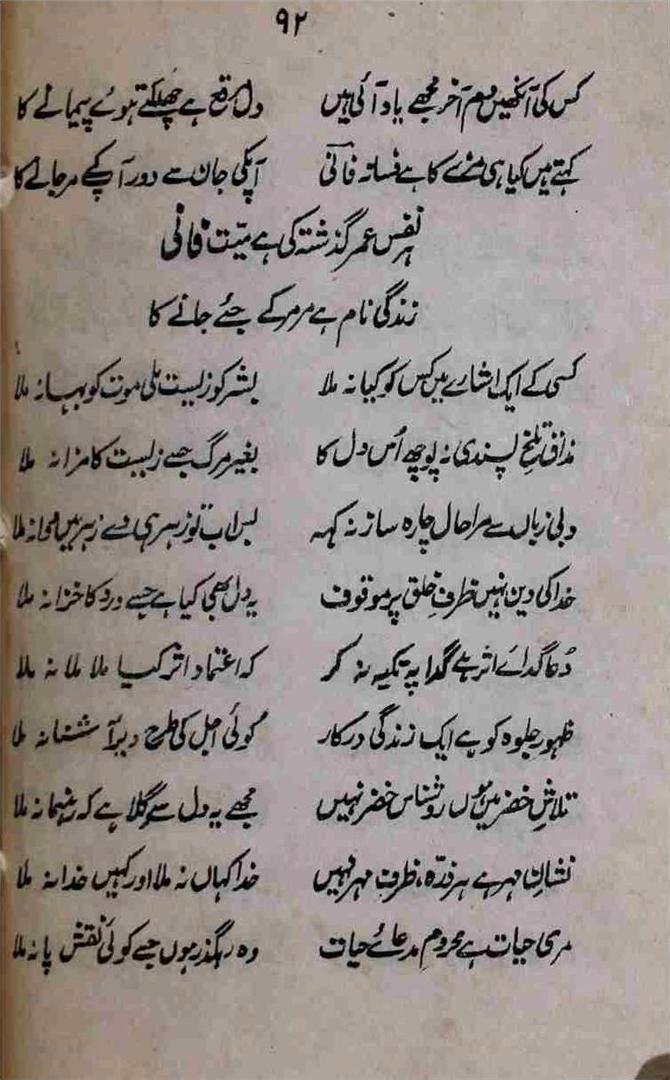 ۹۲
کس کی آنکھیں دم آخر مجھے یاد آئی ہیں دل مرقع ہے چھلکتے ہوئے پیمانے کا
کہتے ہیں کیا ہی مزے کا ہے فسانہ فانی آپکی جان سے دور آپکے مرجانے کا
ہر نفس عمر گذشتہ کی ہے میت فانی
زندگی نام ہے مرمر کے جئے جانے کا
کسی کے ایک اشارے میں کس کو کیا نہ ملا بشر کو زیست ملی موت کو بہانہ ملا
مذاق تلخ پسندی نہ پوچھ اُس دل کا بغیر مرگ جسے زیست کا مزا نہ ملا
دبی زباں سے مرا حال چارہ ساز نہ کہہ بس اب تو زہر ہی دے زہر میں دوا نہ ملا
خدا کی دین نہیں ظرفِ خلق پر موقوف یہ دل بھی کیا ہے جسے درد کا خزانہ ملا
دُعا گدائے اثر ہے گدا پہ تکیہ نہ کر کہ اعتماد اثر کیا ملا ملا نہ ملا
ظہور جلوہ کو ہے ایک زندگی درکار کوئی اجل کی طرح دیر آشنا نہ ملا
تلاشِ خضر میں ہوں روشناس خضر نہیں مجھے یہ دل سے گلا ہے کہ رہنما نہ ملا
نشانِ مہر ہے ہر ذرّہ، ظرفِ مہر نہیں خدا کہاں نہ ملا اور کہیں خدا نہ ملا
مری حیات ہے محروم مدعائے حیات وہ رہگذر ہوں جسے کوئی نقش پا نہ ملا